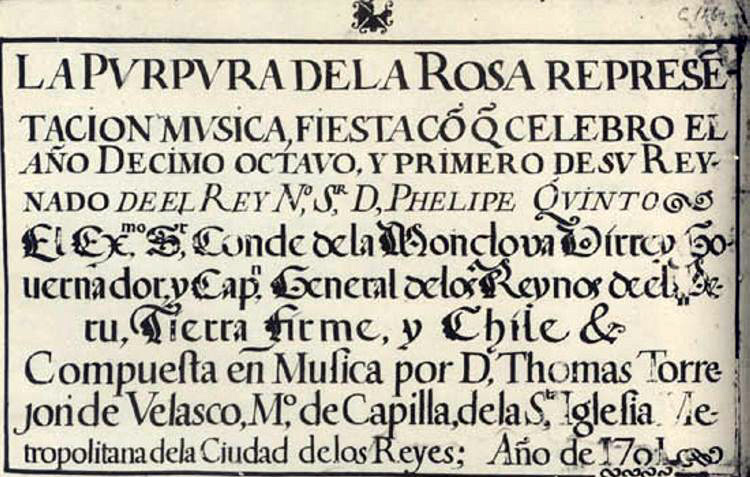 LA PVRPVRA DE LA ROSA REPRESĒ-
TACION MVSICA, FIESTA CÕ Q̃ CELEBRO EL
AÑO DECIMO OCTAVO, Y PRIMERO DE SV REY-
NADO DE EL REY N.º S.ʳ D, PHELIPE QVINTO
El Exᵐᵒ, Sʳ, Conde de la Monclova Virrey Go-
uernador, y Capⁿ, General de los Reynos de el Pe-
ru, Tierra Firme, y Chile &
Compuesta en Musica por D, Thomas Torre-
jon de Velasco, Mº, de Capilla, de la Sᵗᵃ Iglesia Me-
tropolitana de la Ciudad de los Reyes; Año de 1701